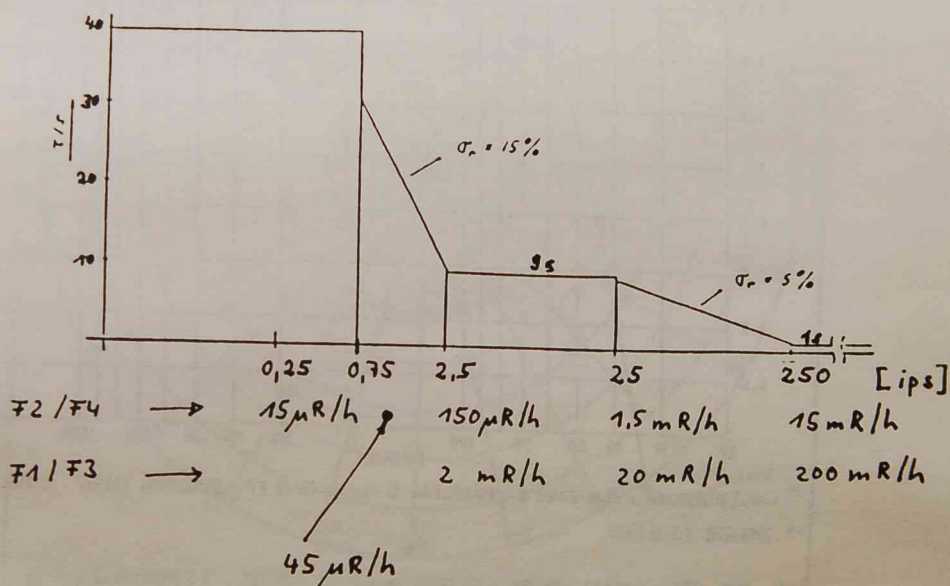 40
30
T/s
20
10
σr = 15%
9s
σr = 5%
1s
0,25 0,75 2,5 25 250 [ips]
F2/F4 → 15µR/h 150µR/h 1,5mR/h 15mR/h
F1/F3 → 2 mR/h 20mR/h 200mR/h
45µR/h